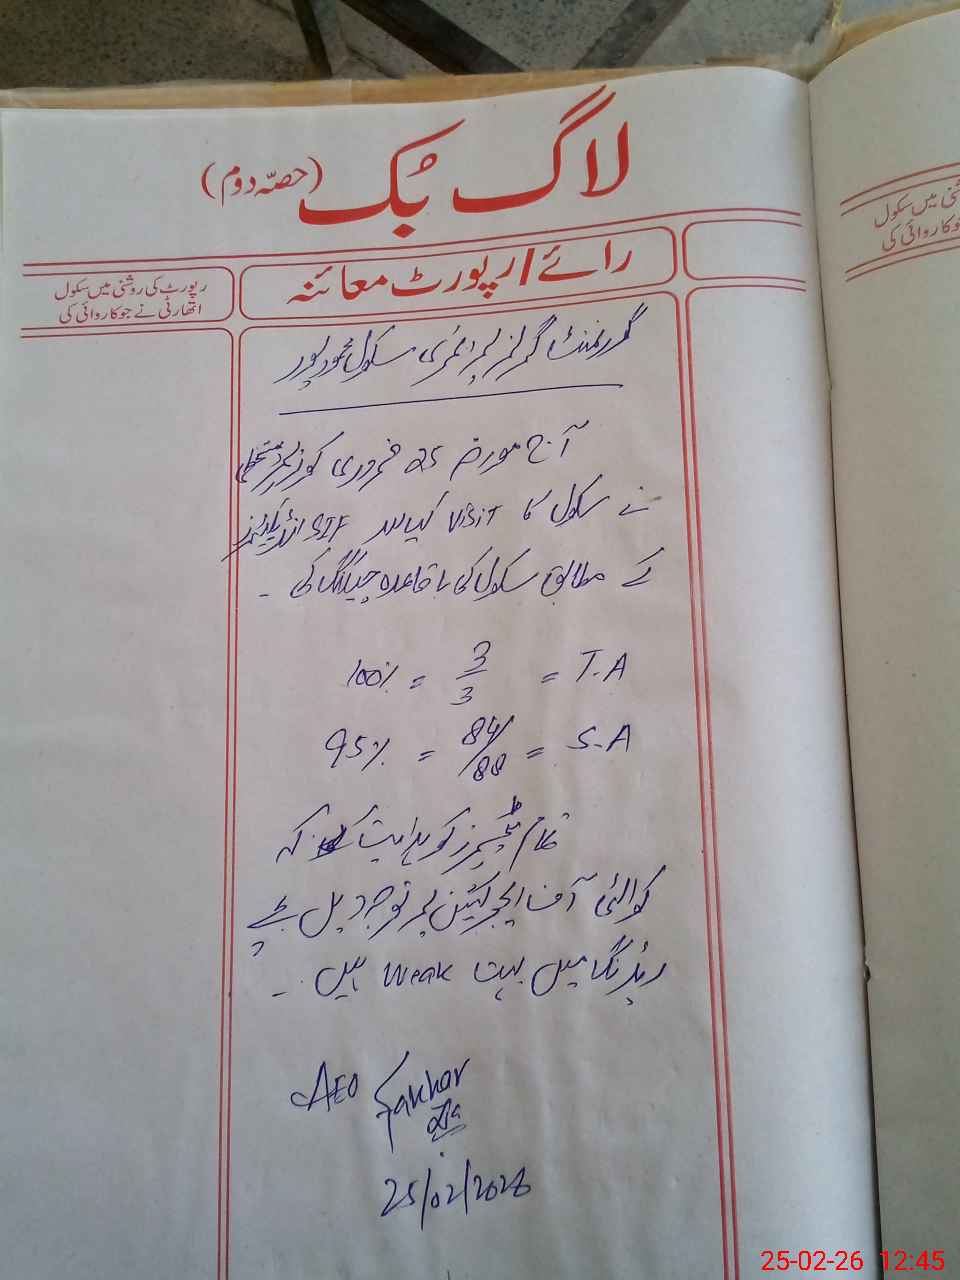 لاگ بُک (حصّہ دوم)
رائے/رپورٹ معائنہ
رپورٹ کی روشنی میں سکول
اتھارٹی نے جو کاروائی کی
گورنمنٹ گرلز پرائمری سکول محمود پور
آج مورخہ 25 فروری کو زیر دستخطی
نے سکول کا visit کیا اور SIF انڈیکیٹرز
کے مطابق سکول کی باقاعدہ چیکنگ کی ۔
T.A = 3/3 = 100%
S.A = 84/88 = 95%
تمام ٹیچرز کو ہدایت کہ
کوالٹی آف ایجوکیشن پر توجہ دیں بچے
ریڈنگ میں بہت weak ہیں ۔
AEO Fakhar
25/02/2026
شنی میں سکول
جو کاروائی کی
25-02-26 12:45